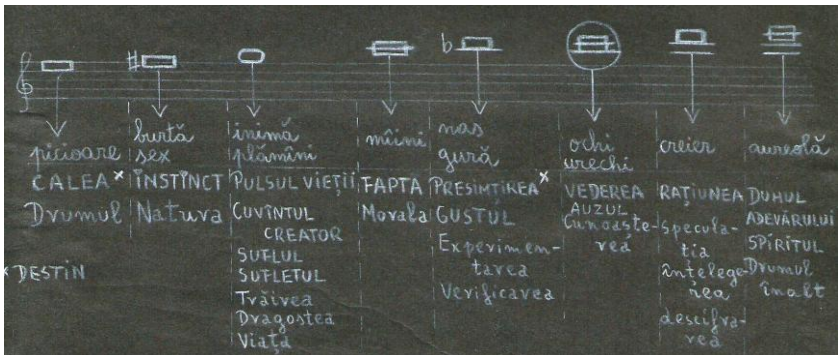 picioare
CALEA ×
Drumul
× DESTIN
♯
burtă
sex
INSTINCT
Natura
inimă
plămîni
PULSUL VIEȚII
CUVÎNTUL
CREATOR
SUFLUL
SUFLETUL
Trăirea
Dragostea
Viața
mîini
FAPTA
Morala
♭
nas
gură
PRESIMȚIREA ×
GUSTUL
Experimen-
tarea
Verificarea
ochi
urechi
VEDEREA
AUZUL
Cunoaște-
rea
creier
RAȚIUNEA
specula-
ția
înțelege-
rea
descifra-
rea
aureolă
DUHUL
ADEVĂRULUI
SPIRITUL
Drumul
înalt